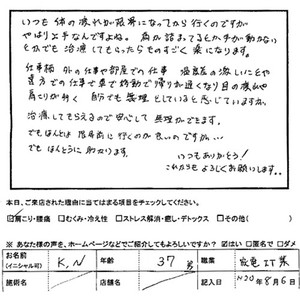 いつも体の疲れが限界になってから行くのですが
やはり上手なんですよね。肩が詰まってるとか手が動かない
とかでも治療してもらったらものすごく楽になります。
仕事柄 外の仕事や部屋での仕事 温度差の激しいことや
遠方での仕事で車で移動で帰りが遅くなり目の疲れや
肩こりが 自分でも無理をしていると思いますが、
治療してもらえるので安心して無理ができます。
でもほんとは 限界前に行くのが良いのですが…
でもほんとうに助かります。
いつもありがとう!
これからもよろしくお願いします。
本日、ご来店された理由に当てはまる項目をチェックしてください。
☑肩こり・腰痛 □むくみ・冷え性 □ストレス解消・癒し・デトックス □その他( )
※ あなた様の声を、ホームページなどでご紹介してもよろしいですか? ☑はい □匿名で □ダメ
お名前 (イニシャル可) K,N 年齢 37才 職業
施術名 店舗名 記入日 H20年8月6日